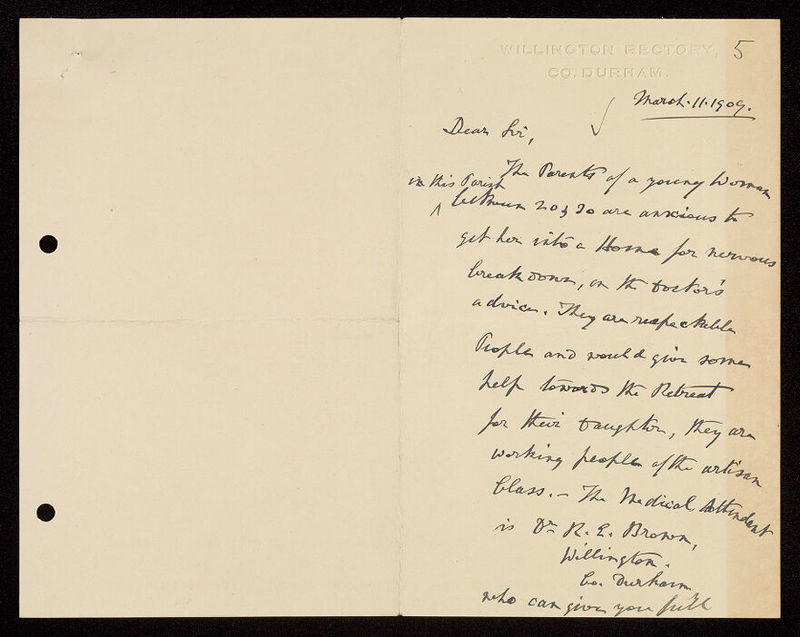 WILLINGTON RECTORY,
CO. DURHAM.
5
March. 11. 1909.
Dear Sir,
The Parents of a young Woman
in this Parish
between 20 & 30 are anxious to
get her into a Home for nervous
breakdown, on the Doctor's
advice. They are respectable
People and would give some
help towards the Retreat
for their Daughter, they are
working people of the artisan
Class. – The Medical Attendant
is Dr R. E. Brown,
Willington.
Co. Durham
who can give you full